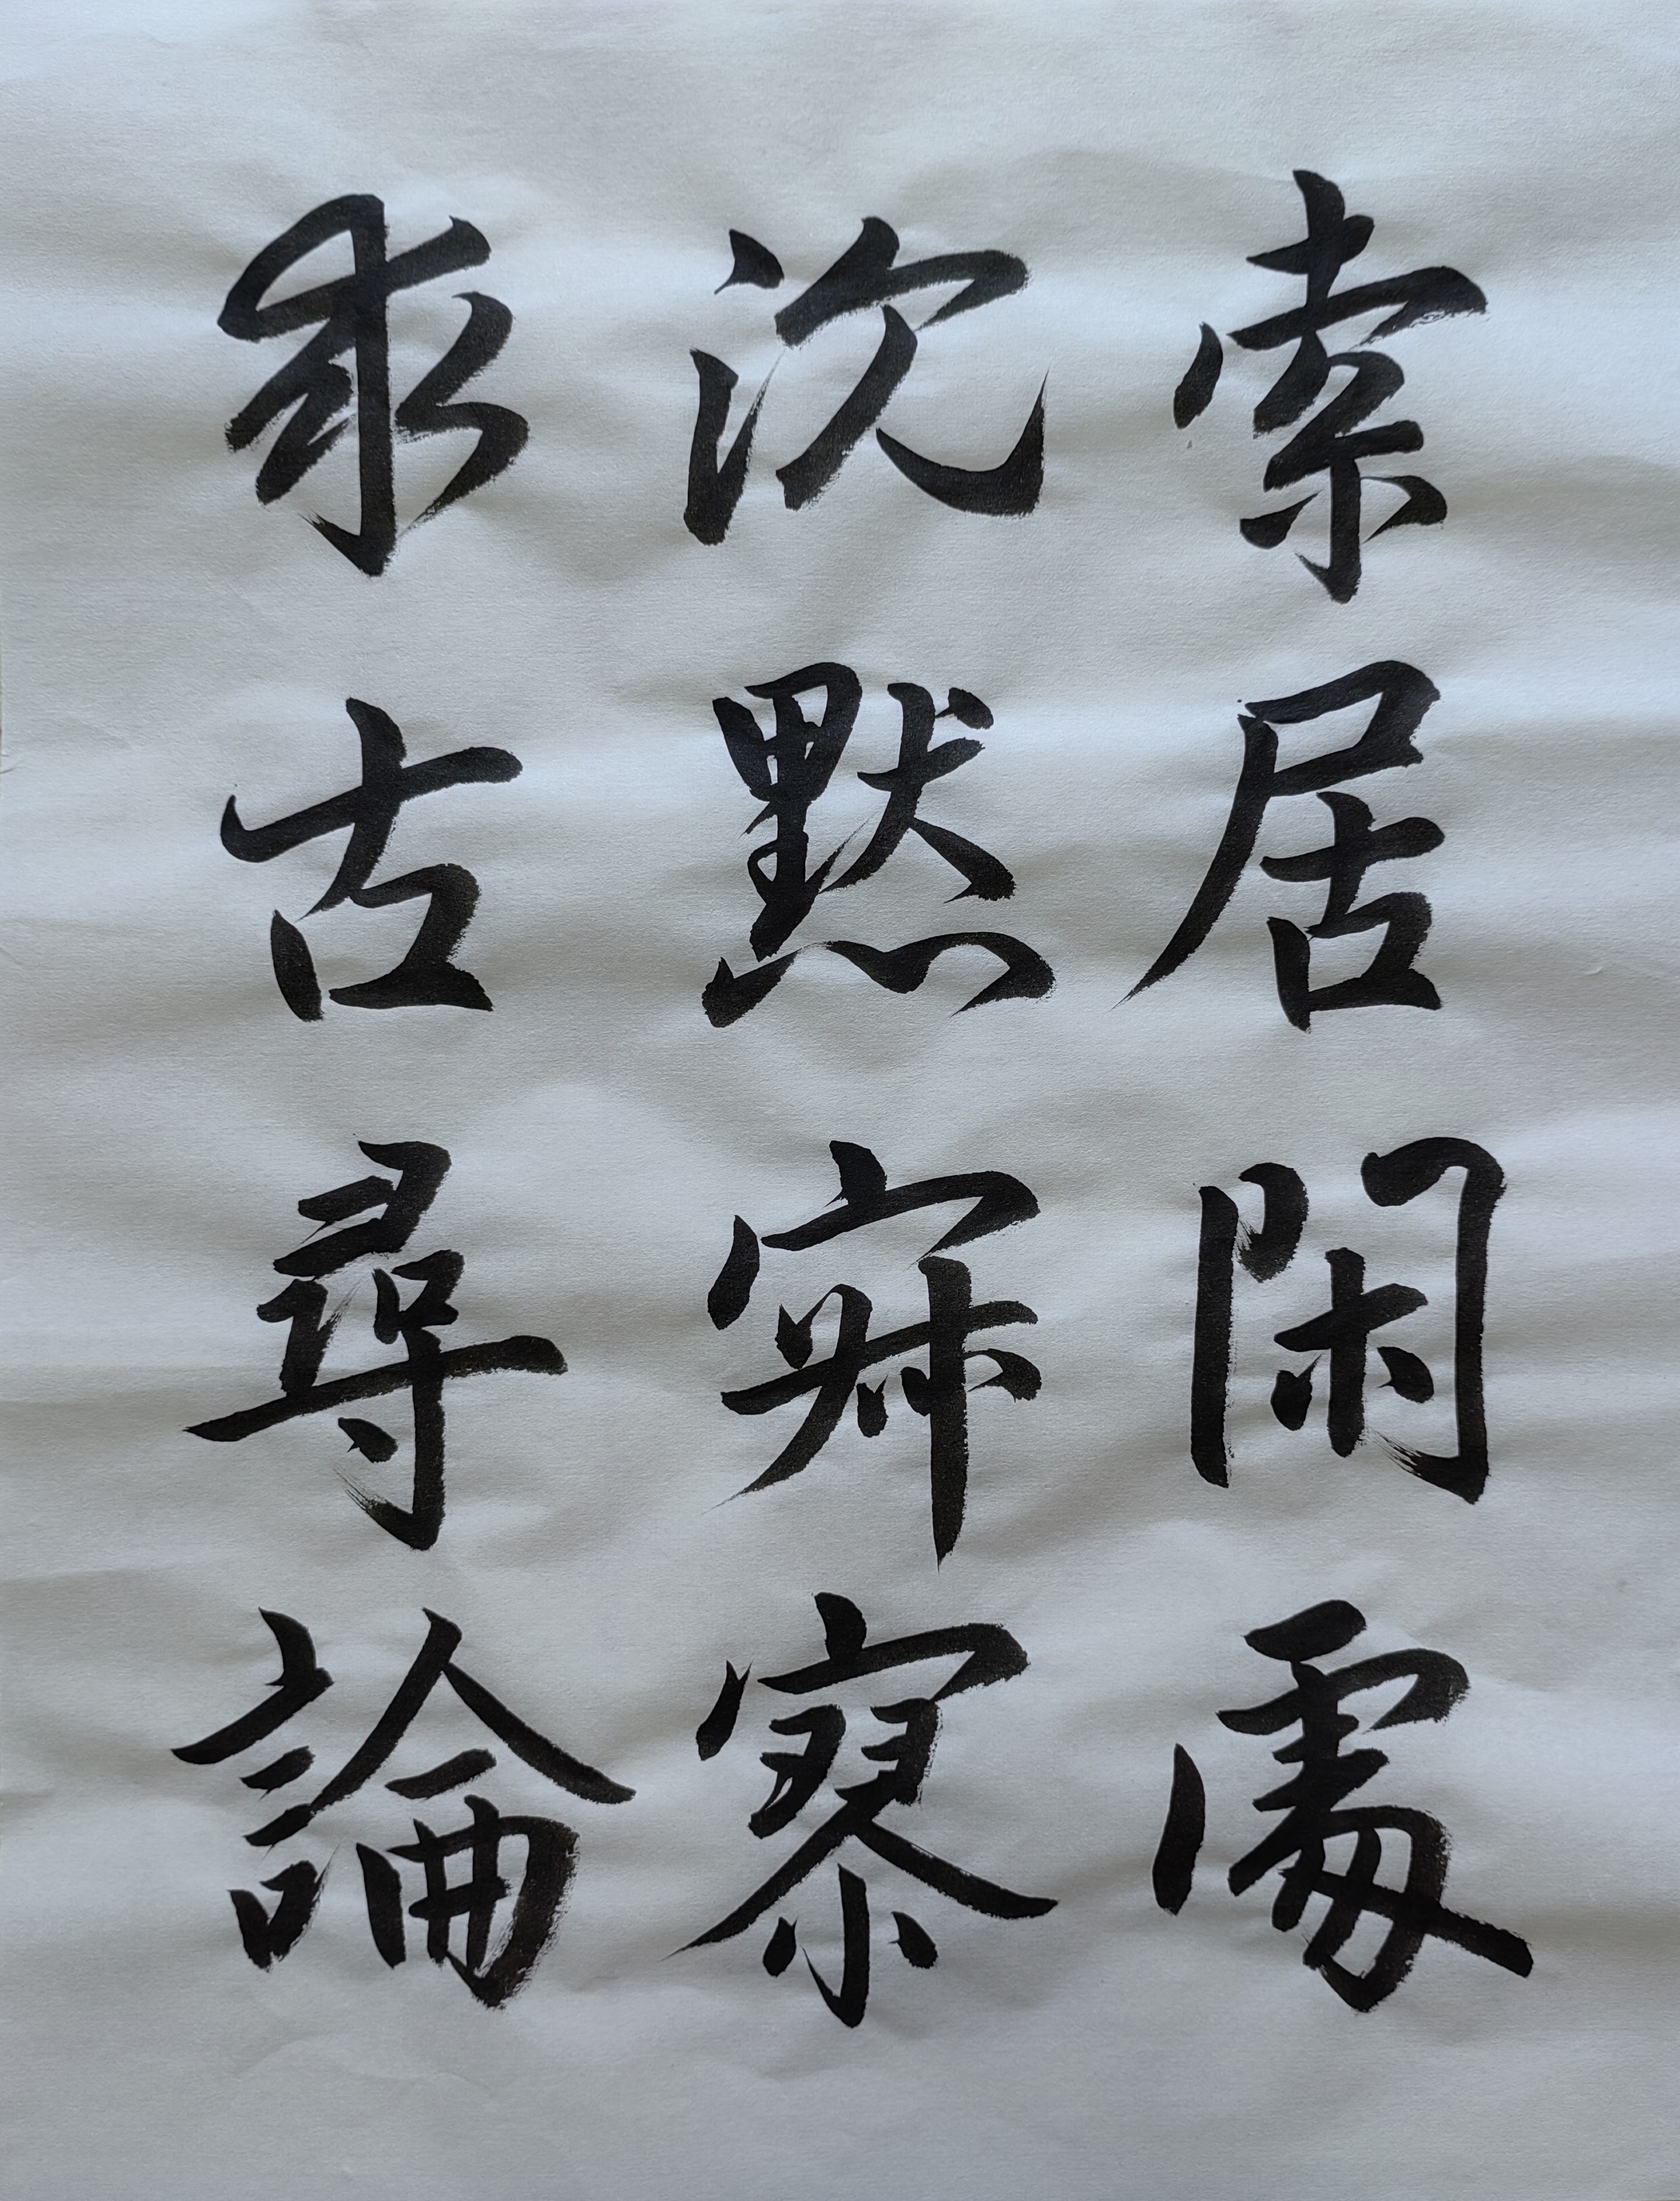 索居閑處
沉默寂寥
求古尋論